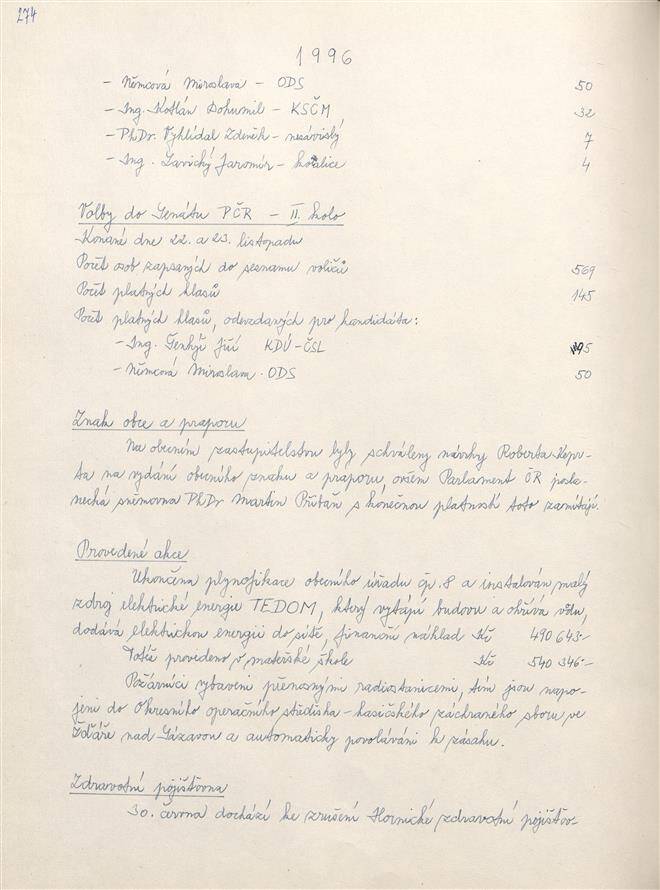 274
1996
- Němcová Miroslava - ODS 50
- Ing. Kotlán Bohumil - KSČM 32
- PhDr. Vyhlídal Zdeněk - nezávislý 7
- Ing. Lavický Jaromír - koalice 4
Volby do Senátu PČR - II. kolo
Konané dne 22. a 23. listopadu
Počet osob zapsaných do seznamu voličů 569
Počet platných hlasů 145
Počet platných hlasů, odevzdaných pro kandidáta:
- Ing. Šenkýř Jiří KDÚ-ČSL 95
- Němcová Miroslava - ODS 50
Znak obce a praporu
Na obecním zastupitelstvu byly schváleny návrhy Roberta Kopr-
ta na vydání obecního znaku a praporu, ovšem Parlament ČR posla-
necká sněmovna PhDr Martin Přibáň s konečnou platností toto zamítají.
Provedené akce
Ukončena plynofikace obecního úřadu čp. 8 a instalován malý
zdroj elektrické energie TEDOM, který vytápí budovu a ohřívá vodu,
dodává elektrickou energii do sítě, finanční náklad Kč 490 643.-
Totéž provedeno v mateřské škole Kč 540 346.-
Požárníci vybaveni přenosnými radiostanicemi, tím jsou napo-
jeni do Okresního operačního střediska - hasičského záchraného sboru ve
Žďáře nad Sázavou a automaticky povoláváni k zásahu.
Zdravotní pojišťovna
30. června dochází ke zrušení Hornické zdravotní pojišťov-